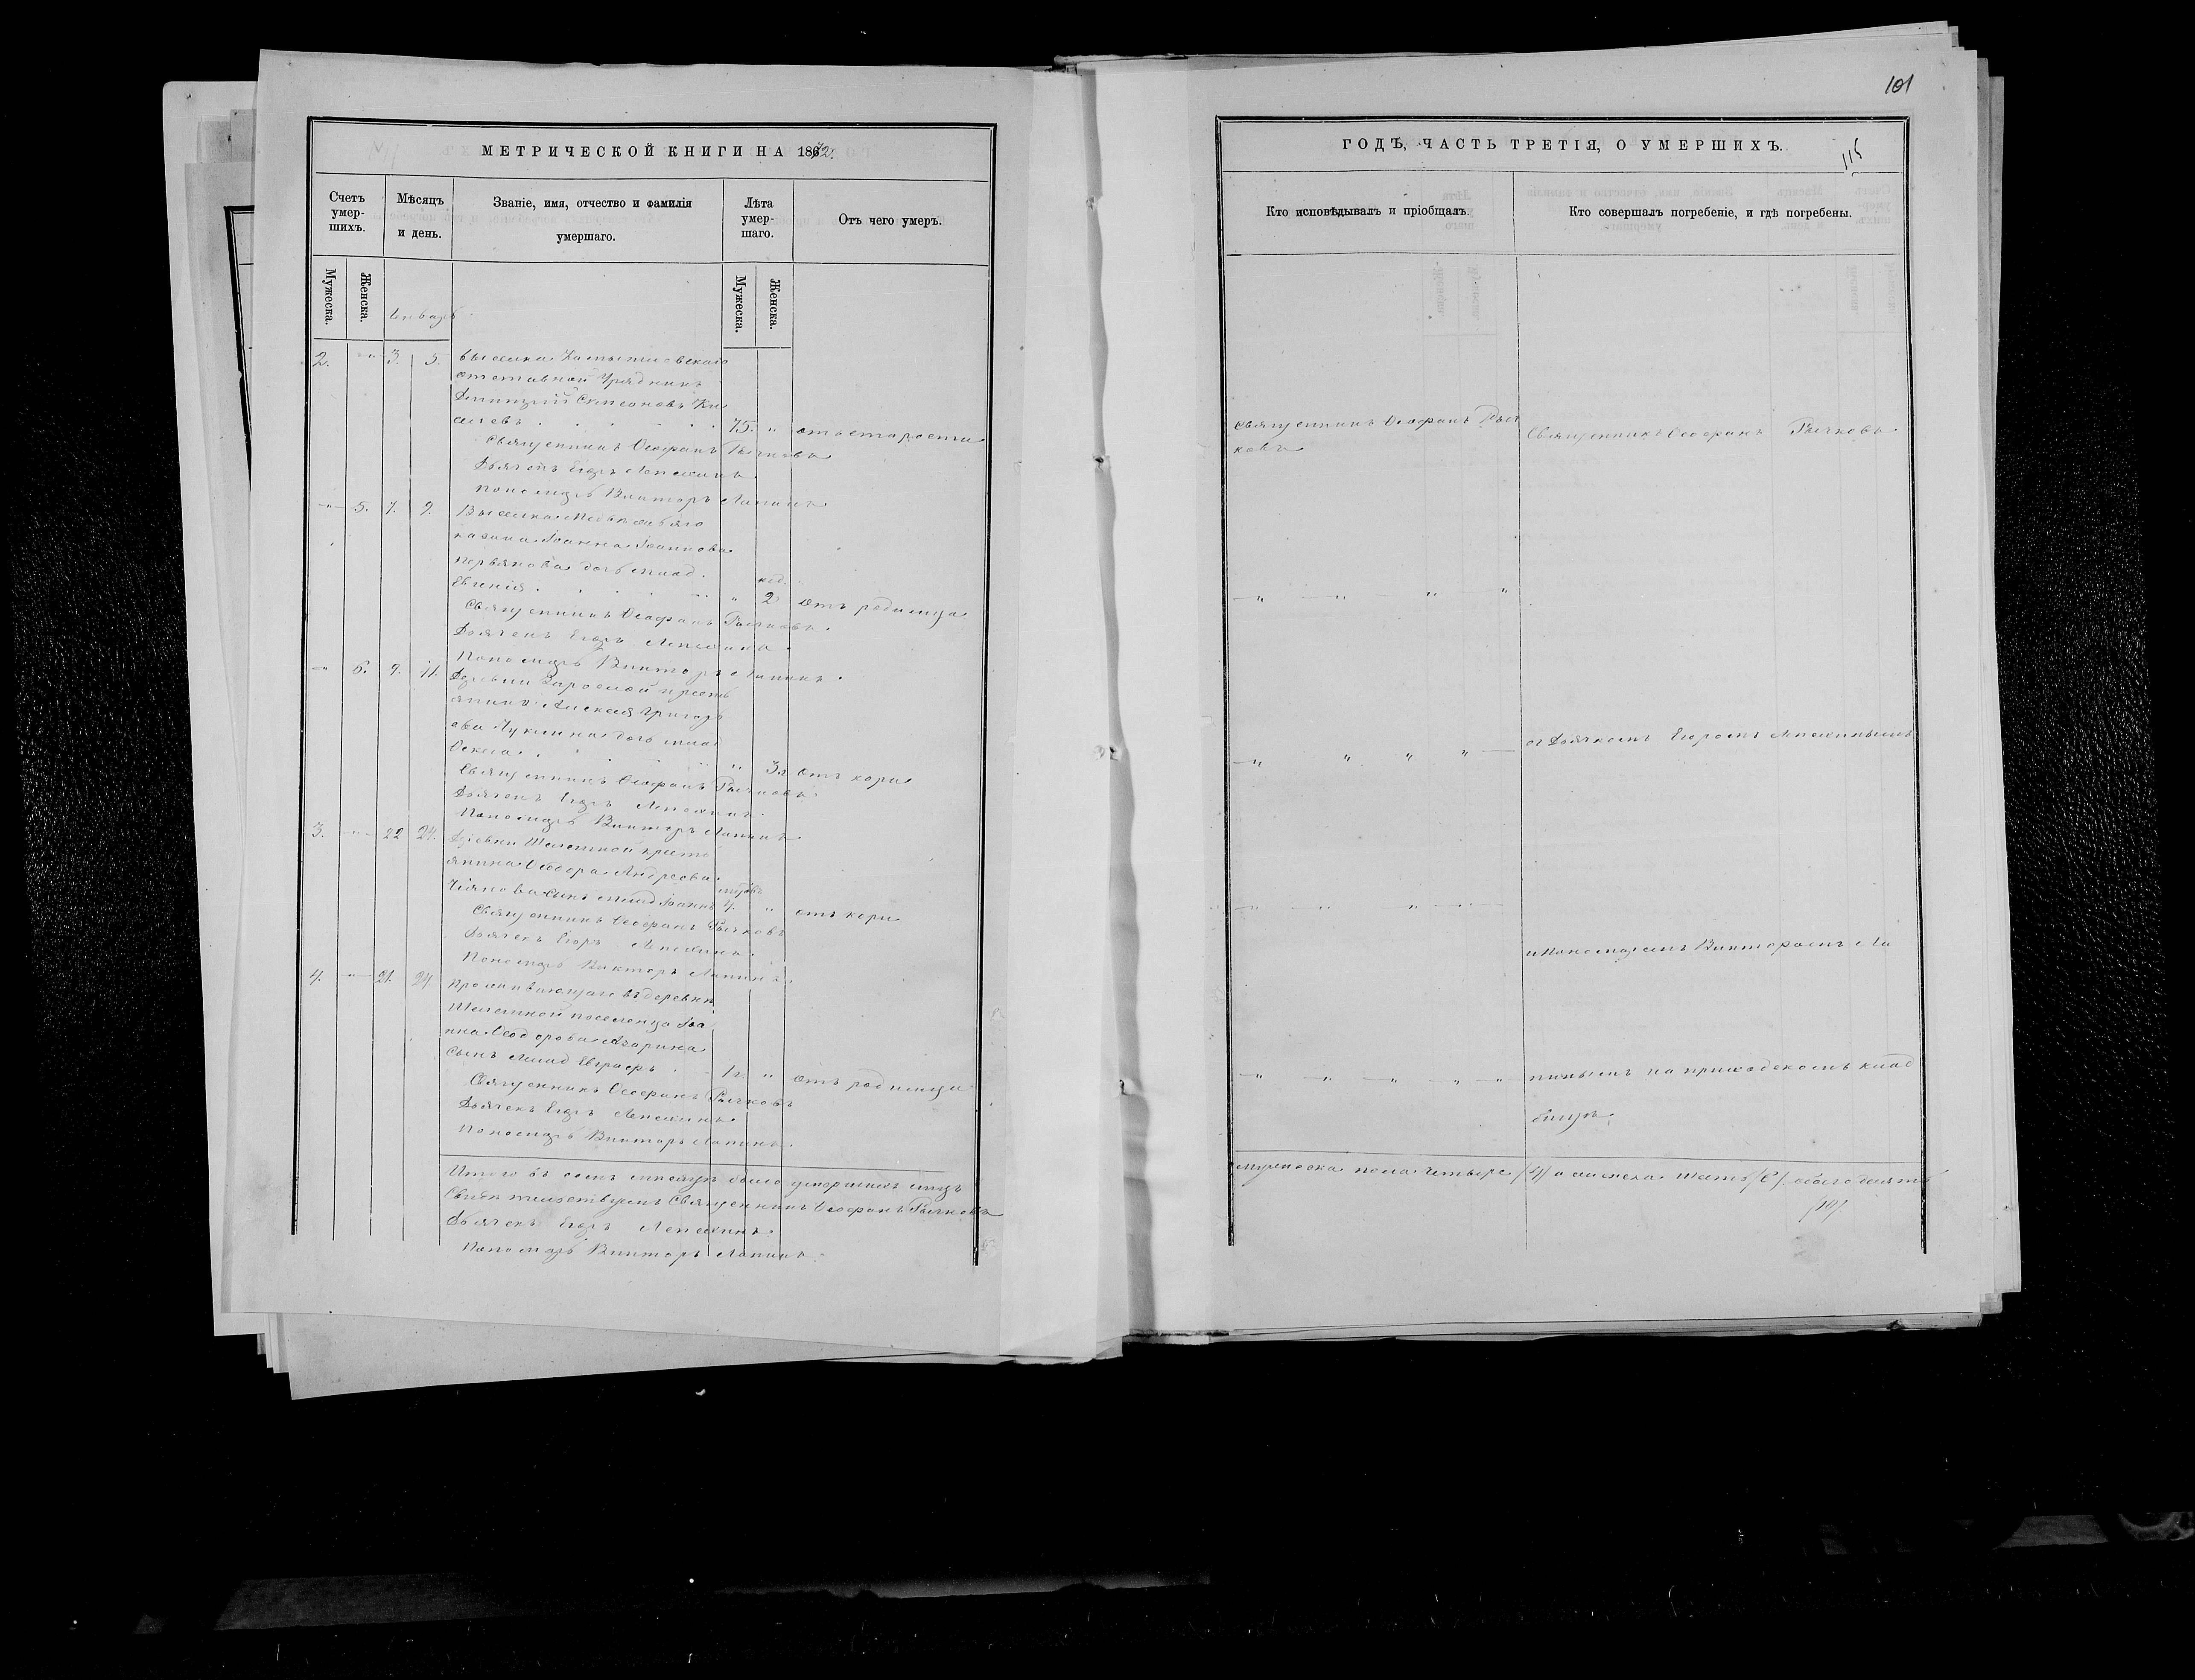 101
115
МЕТРИЧЕСКОЙ КНИГИ НА 1872.
Счетъ умер- шихъ.
Мѣсяцъ и день.
Званіе, имя, отчество и фамилія умершаго.
Лѣта умер- шаго.
Отъ чего умеръ.
Мужеска.
Женска.
Январь
Мужеска.
Женска.
2. " 3. 5. выселка
отставной Урядникъ
Димитрій Симеоновъ Ки
селевъ 75. " отъ старости
Священникъ Ѳеофанъ Рычковъ
Дьячекъ Егоръ Лепехинъ.
Пономарь Викторъ Лапинъ.
" 5. 7. 9. Выселка Медвѣжьяго
казака Іоанна Іоаннова
дочь млад.
Евгенія " 2 нед. отъ родимца
Священникъ Ѳеофанъ Рычковъ.
Дьячекъ Егоръ Лепехинъ.
Пономарь Викторъ Лапинъ.
" 6. 9. 11. Деревни крестъ
янина Алексія Григорь
ева дочь млад
" 3 л отъ кори
Священникъ Ѳеофанъ Рычковъ
Дьячекъ Егоръ Лепехинъ.
Пономарь Викторъ Лапинъ.
3. " 22 24. Деревни кресть
янина Ѳеодора Андреева
сынъ млад Іоаннъ " отъ кори
Священникъ Ѳеофанъ Рычковъ
Дьячекъ Егоръ Лепехинъ.
Пономарь Викторъ Лапинъ.
4. " 21. 24. Проживающаго въ деревнѣ
поселенца Іоа
нна Ѳеодорова
сынъ млад Евграфъ 1 г. " отъ родимца
Священникъ Ѳеофанъ Рычковъ
Дьячекъ Егоръ Лепехинъ.
Пономарь Викторъ Лапинъ.
Итого въ семъ мѣсяцѣ было умершихъ лицъ
Свидѣтельствуемъ Священникъ Ѳеофанъ Рычковъ
Дьячекъ Егоръ Лепехинъ.
Пономарь Викторъ Лапинъ.
ГОДЪ, ЧАСТЬ ТРЕТІЯ, О УМЕРШИХЪ.
Кто исповѣдывалъ и пріобщалъ.
Кто совершалъ погребеніе, и гдѣ погребены.
Священникъ Ѳеофанъ Рыч
ковъ
Священникъ Ѳеофанъ Рычковъ
" " " "
" " " "
съ Дьячкомъ Егоромъ Лепехинымъ
" " " "
и Пономаремъ Викторомъ Ла
" " " " "
пинымъ на приходскомъ клад
бищѣ.
мужеска пола четыре (4) а женска шесть (6). обоего десять
(10).